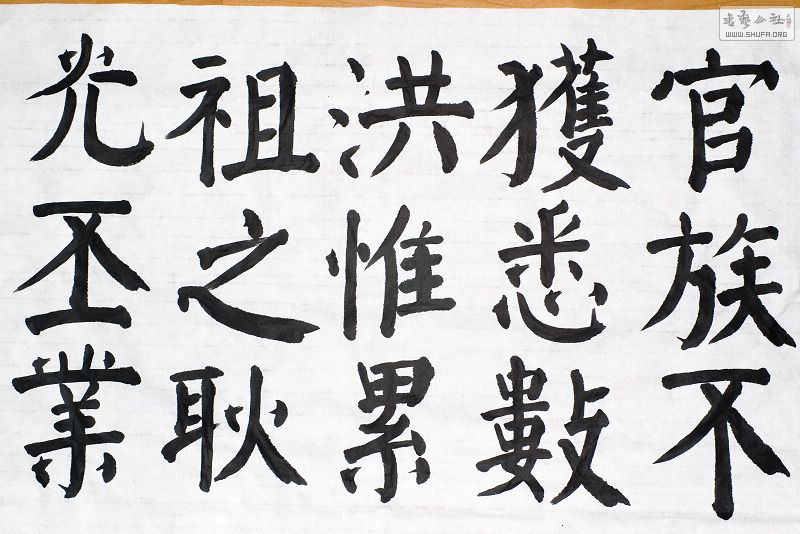 官族不
獲悉數
洪惟累
祖之耿
光丕業
書藝公社
WWW.SHUFA.ORG